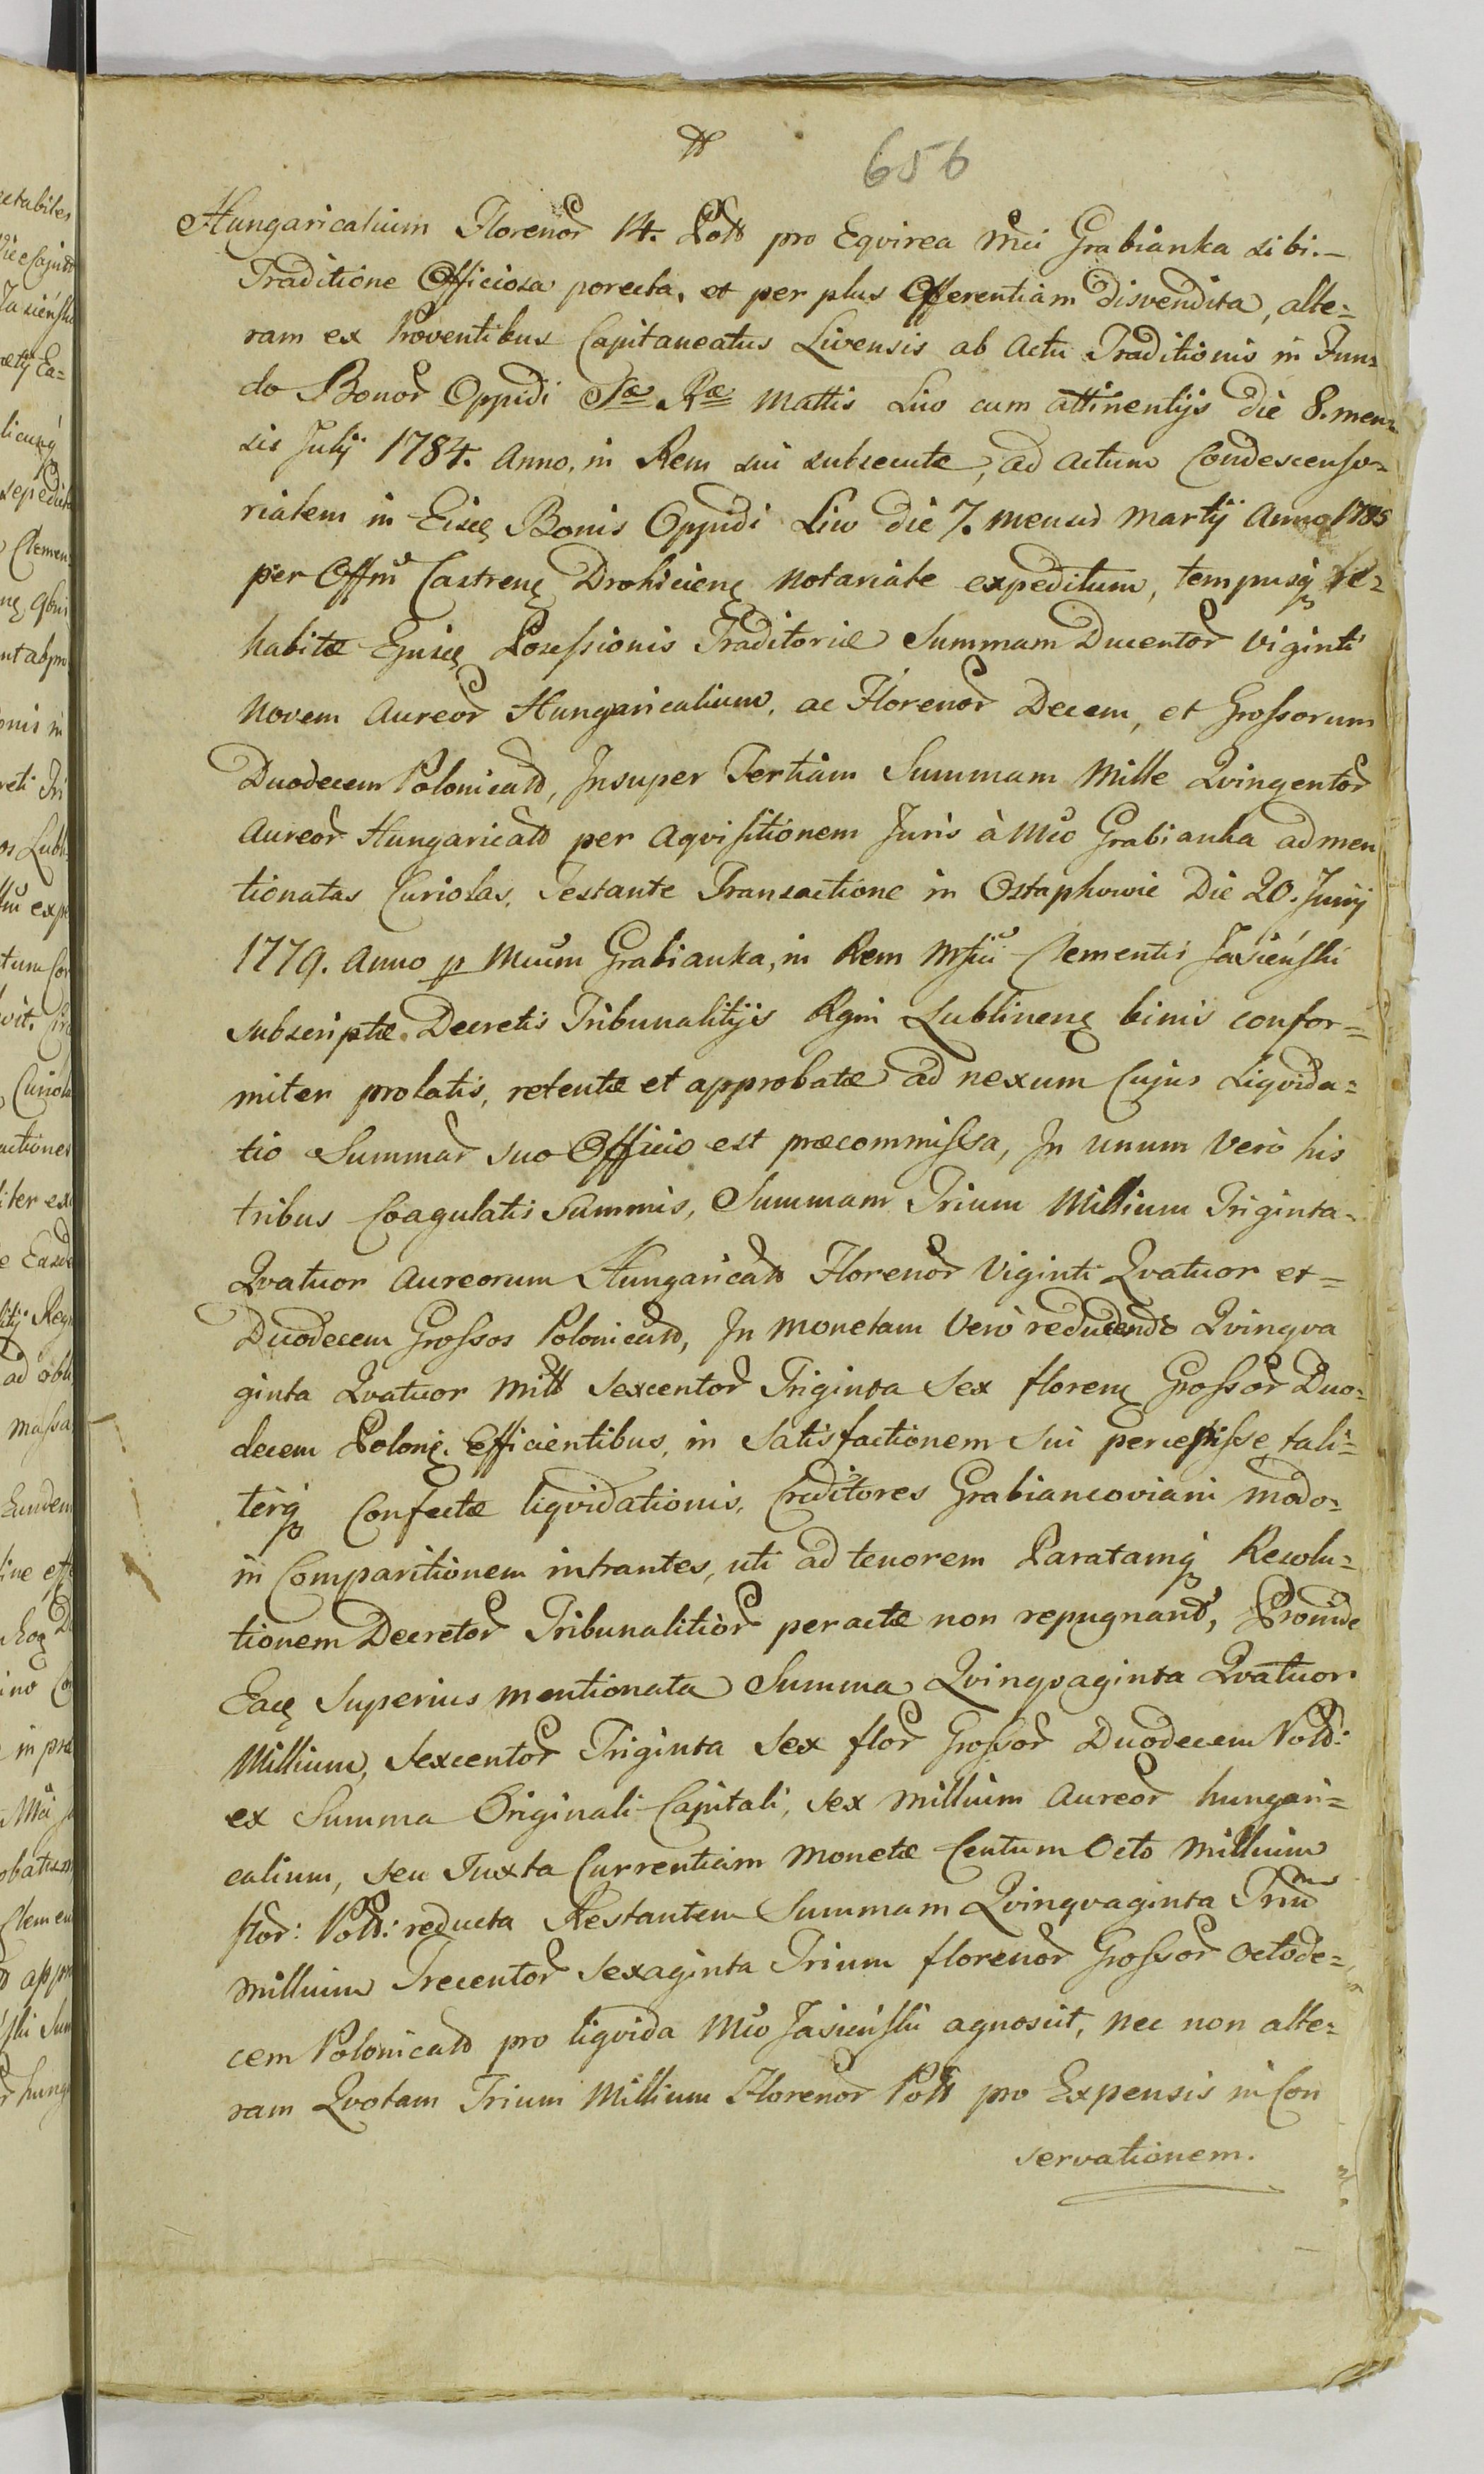 656
Hungaricalium Florenor 14. Poll pro Eqvirea Mci Grabianka sibi.
Traditione Officiosa porecta, et per plus Offerentiam disvendita, alte=
ram ex Proventibus Capitaneatus Livensis ab Actu Traditionis in Fun=
do Bonor Oppidi Sæ Ræ Mattis Liw cum attinentijs die 8. men=
sis Julij 1784. Anno, in Rem sui subsecutæ, ad actum Condescenso=
rialem in Eisdę Bonis Oppidi Liw die 7. mensis Martij Anno 1785
per Offm Castrenę Drohicienę Notariale expeditum, tempusq re=
habitæ Ejusdę Possessionis Traditoriæ Summam Ducentor Viginti
Novem Aureor Hungaricalium, ac Florenor Decem, et Grossorum
Duodecem Polonicald, Insuper Tertiam Summam Mille Qvingentor
Aureor Hungaricald per Aqvisitionem Juris à Mco Grabianka ad men
tionatas Curiolas, Testante Transactione in Ostaphowie Die 20. Junij
1779. Anno p Mcum Grabianka, in Rem Mfici Clementis Jasieński
subscriptæ Decretis Tribunalitijs Rgni Lublinenę binis confor=
miter prolatis, retentæ et approbatæ ad nexum Cujus Liqvida=
tio Summar suo Officio est præcommissa, In unum Verò his
tribus Coagulatis Summis, Summam Trium Millium Triginta
Qvatuor Aureorum Hungaricald Florenor Viginti Qvatuor et=
Duodecem Grossos Polonicald, In monetam Verò reducendo Qvingva
ginta Qvatuor Mill Sexcentor Triginta Sex florenę Grossor Duo=
decem Polonę. Efficientibus, in Satisfactionem Sui percepisse, tali=
terq Confectæ liqvidationis, Creditores Grabiancoviani modo=
in Comparitionem intrantes, uti ad tenorem Paratamq Resolu=
tionem Decretor Tribunalitior peractæ non repugnant, Proinde
Eadę Superius mentionata Summa Qvingvaginta Qvatuor
Millium, Sexcentor Triginta Sex flor Grossor Duodecem Poll:
ex Summa Originali Capitali, Sex Millium Aureor hungari=
calium, seu Juxta Currentiam Monetæ Centum Octo Millium
flor: Poll: reducta Restantem Summam Qvingvaginta Trium
Millium Trecentor Sexaginta Trium florenor Grossor Octode=
cem Polonicald pro liqvida Mco Jasieński agnoscit, nec non alte=
ram Qvotam Trium Millium Florenor Poll pro Expensis in Con
servationem.